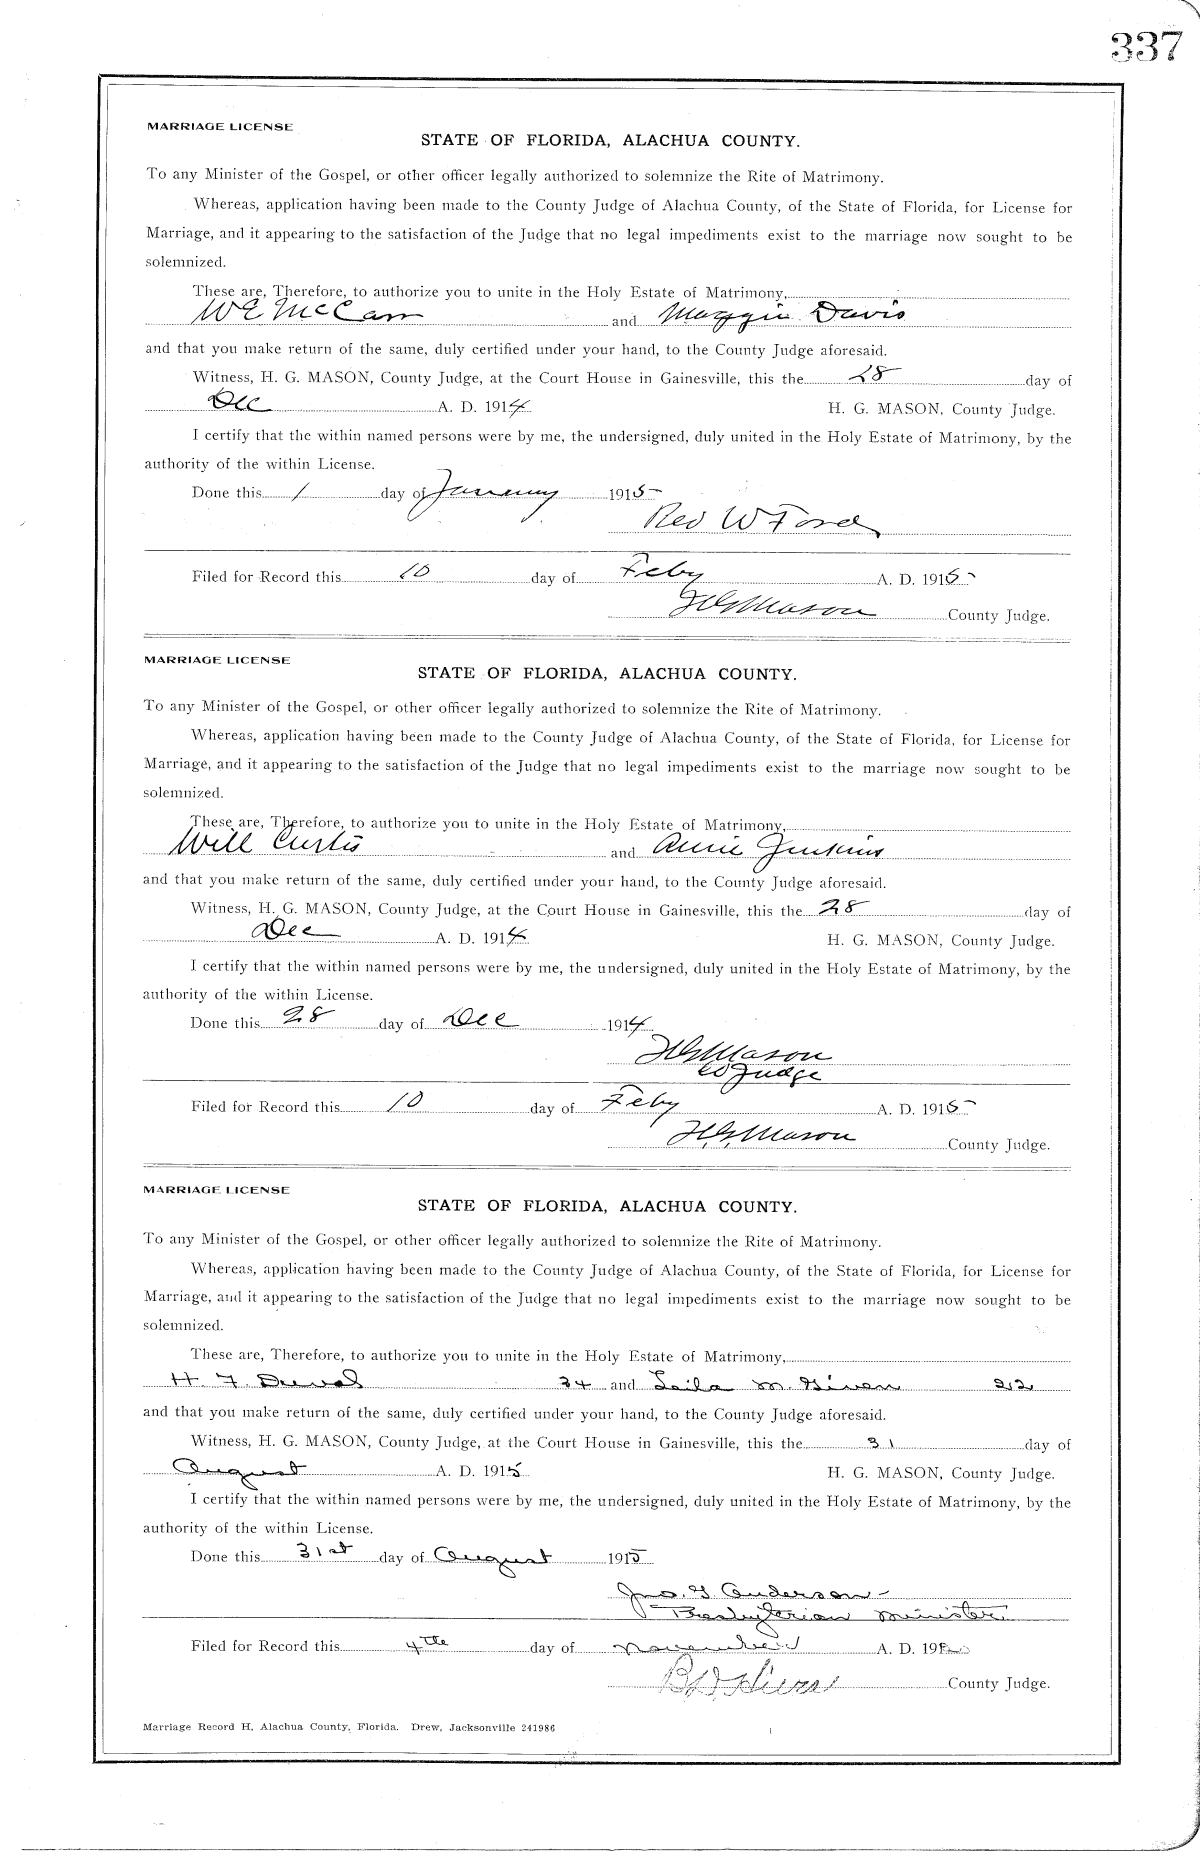 337
MARRIAGE LICENSE
STATE OF FLORIDA, ALACHUA COUNTY.
To any Minister of the Gospel, or other officer legally authorized to solemnize the Rite of Matrimony.
Whereas, application having been made to the County Judge of Alachua County, of the State of Florida, for License for
Marriage, and it appearing to the satisfaction of the Judge that no legal impediments exist to the marriage now sought to be
solemnized.
These are, Therefore, to authorize you to unite in the Holy Estate of Matrimony,
W E McCarr and Maggie Davis
and that you make return of the same, duly certified under your hand, to the County Judge aforesaid.
Witness, H. G. MASON, County Judge, at the Court House in Gainesville, this the 28 day of
Dec A. D. 1914 H. G. MASON, County Judge.
I certify that the within named persons were by me, the undersigned, duly united in the Holy Estate of Matrimony, by the
authority of the within License.
Done this 1 day of January 1915
Rev W Ford
Filed for Record this 10 day of Feby A. D. 1915
H G Mason County Judge.
MARRIAGE LICENSE
STATE OF FLORIDA, ALACHUA COUNTY.
To any Minister of the Gospel, or other officer legally authorized to solemnize the Rite of Matrimony.
Whereas, application having been made to the County Judge of Alachua County, of the State of Florida, for License for
Marriage, and it appearing to the satisfaction of the Judge that no legal impediments exist to the marriage now sought to be
solemnized.
These are, Therefore, to authorize you to unite in the Holy Estate of Matrimony,
Will Curtis and Annie Jenkins
and that you make return of the same, duly certified under your hand, to the County Judge aforesaid.
Witness, H. G. MASON, County Judge, at the Court House in Gainesville, this the 28 day of
Dec A. D. 1914 H. G. MASON, County Judge.
I certify that the within named persons were by me, the undersigned, duly united in the Holy Estate of Matrimony, by the
authority of the within License.
Done this 28 day of Dec 1914
H G Mason
Co Judge
Filed for Record this 10 day of Feby A. D. 1915
H. G. Mason County Judge.
MARRIAGE LICENSE
STATE OF FLORIDA, ALACHUA COUNTY.
To any Minister of the Gospel, or other officer legally authorized to solemnize the Rite of Matrimony.
Whereas, application having been made to the County Judge of Alachua County, of the State of Florida, for License for
Marriage, and it appearing to the satisfaction of the Judge that no legal impediments exist to the marriage now sought to be
solemnized.
These are, Therefore, to authorize you to unite in the Holy Estate of Matrimony,
H. F. Duval 34 and Leila M. Given 22
and that you make return of the same, duly certified under your hand, to the County Judge aforesaid.
Witness, H. G. MASON, County Judge, at the Court House in Gainesville, this the 31 day of
August A. D. 1915 H. G. MASON, County Judge.
I certify that the within named persons were by me, the undersigned, duly united in the Holy Estate of Matrimony, by the
authority of the within License.
Done this 31st day of August 1915
Jno. G. Anderson
Presbyterian Minister
Filed for Record this 4th day of November A. D. 19
County Judge.
Marriage Record H, Alachua County, Florida. Drew, Jacksonville 241986